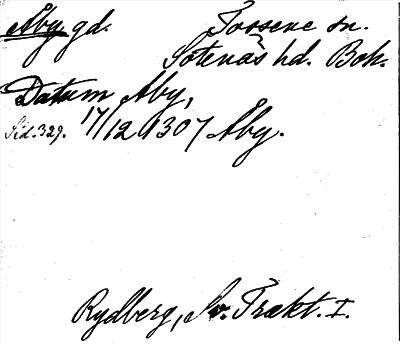 Åby gd. Tossene sn.
Sotenäs hd. Boh.
Datum Aby,
Sid. 329. 17/12 1307 Åby.
Rydberg, Sv. Trakt. I.